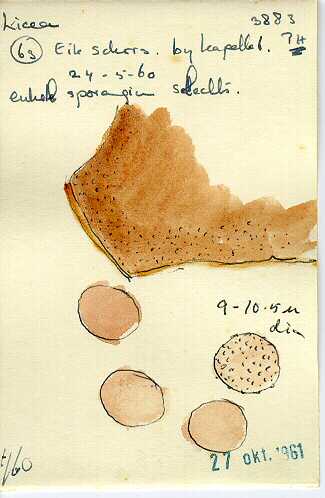 Licea 3883
63 Eik schors. by kapellet. TH
24-5-60
enkele sporangium slechts.
9-10.5 u
dia
27 okt. 1961
/60